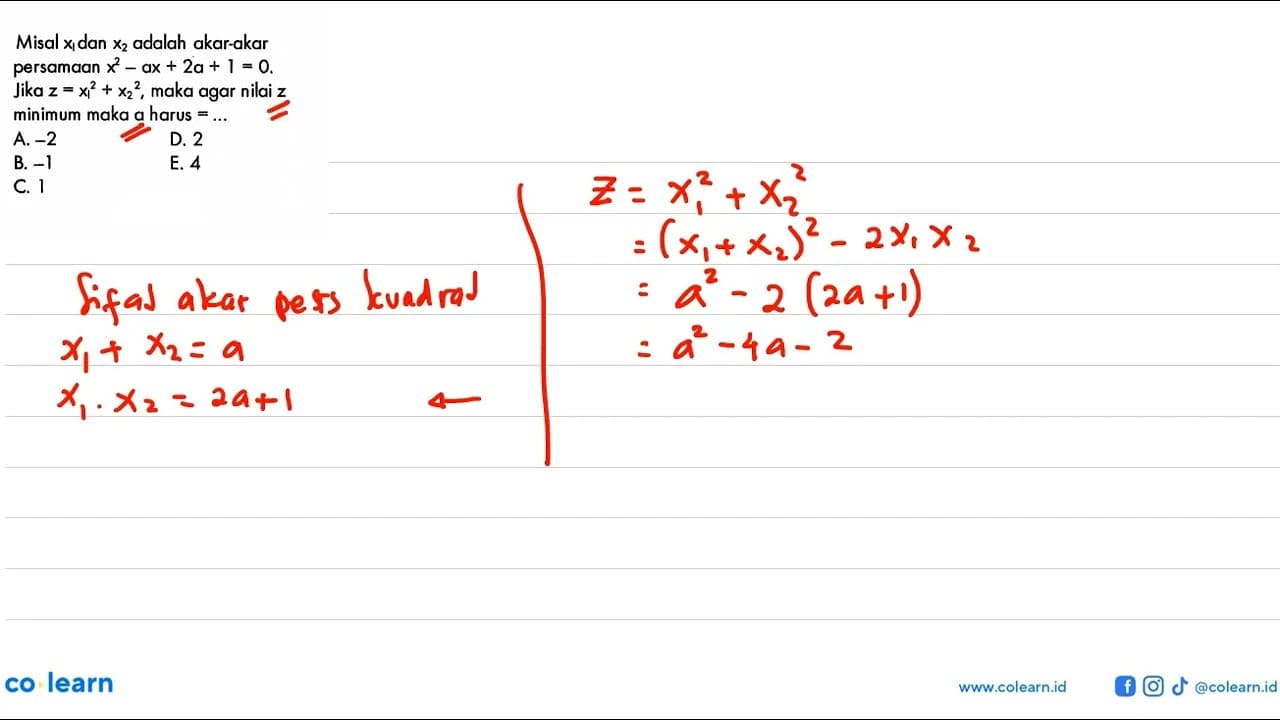 Misal x₁ dan x₂ adalah akar-akar
persamaan x² – ax + 2a + 1 = 0.
Jika z = x₁² + x₂², maka agar nilai z
minimum maka a harus = ...
A. –2
D. 2
B. –1
E. 4
C. 1
Sifat akar pers kuadrat
x₁ + x₂ = a
x₁ . x₂ = 2a+1 ←
Z = x₁² + x₂²
= (x₁ + x₂)² - 2x₁ x₂
= a² - 2 (2a+1)
= a² - 4a - 2
co learn
www.colearn.id
@colearn.id